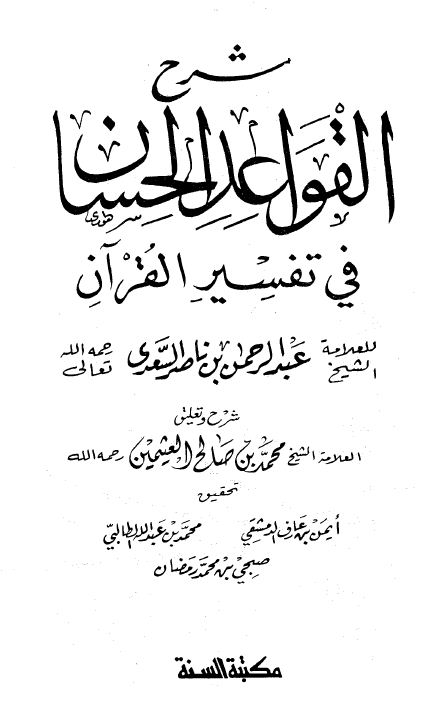 شرح
القَوَاعِدِ الحِسَان
في تفسِيرِ القُرْآنِ
للعلامة الشيخ عبد الرحمن بن ناصر السّعدى رحمه الله تعالى
شرح وتعليق
العلامة الشيخ محمّد بن صالح العثيمين رحمه الله
تحقيق
أيمن بن عارف الدمشقي محمّد بن عبد الله الطالبيّ
صبحي بن محمّد رمضان
مكتبة السنة